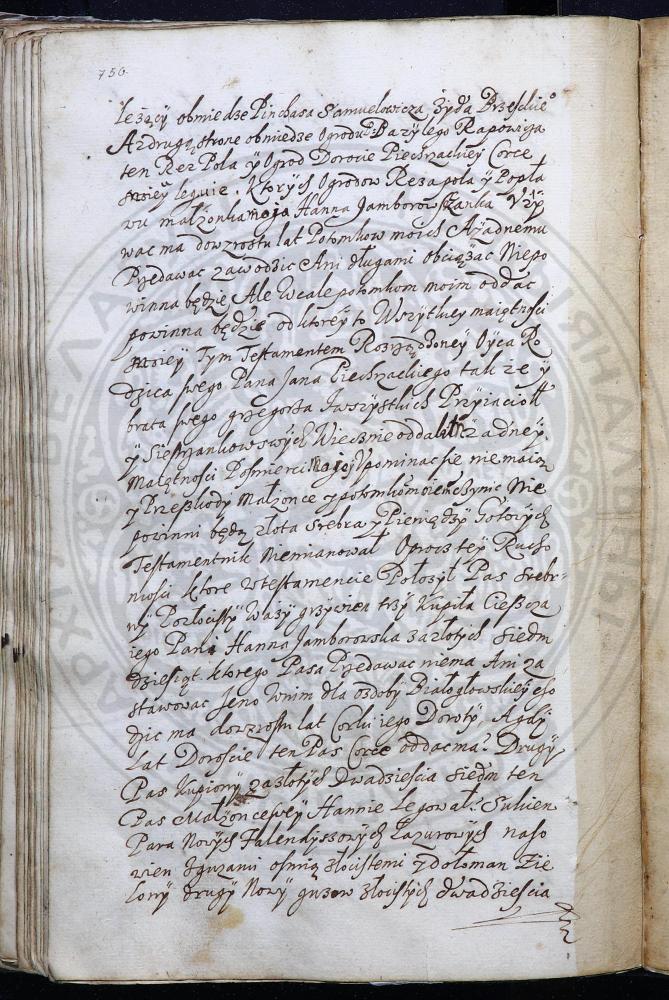 756.
Leżący obmiedze Pinchasa Samuelowicza żyda Brzeskie°
A z drugą stronę obmiedze Ogrodu Bazylego Rapowiza
ten Rez Pola y Ogrod Dorocie Piechzackiey Corce
swoiey leguie, ktorych Ogrodow Reza pola y Popła
wu małżonka moja Hanna Jamborowszanka Vży
wac ma dowzrostu lat Potomkow moich A żadnemu
Przedawac zawodzic Ani długami obciążac Niepo
winna będzie Ale Wcale potomkom moim oddac
powinna będzie od ktorey to Wszytkiey maiętności
swoiey Tym Testamentem Rozrządzoney Oyca Ro
dzica swego Pana Jana Piechzackiego także y
brata swego grzegorza Awszystkich Przyiacioł
y Wiecznie oddalił żadney
Maiętności Pośmierci mojey Vpominac sie nie maią
y Przeszkody Małżonce y potomkom moiem czynic Nie
powinni będą złota srebra y Pieniędzy Gotowych
Testamentnik Niemianował Oprocz tey Rucho
mości ktore w testamencie Położył Pas srebr-
ny Pozłocisty Waży grzywien trzy Kupiła
iego Pani Hanna Jamborowska zazłotych siedm
dziesiąt. ktorego Pasa Przedawac niema Ani za
stawowac Jeno wnim dla ozdoby Białogłowskiey cho
dzic ma dowzrostu lat Corki iego Doroty, A gdy
Lat Doroście ten Pas Corce oddac ma. Drugi
Pas Kupiony zazłotych dwadzieścia siedm ten
Pas Małżonce swey Hannie Legował. Sukien
Para Nowych Falendyszowych Lazurowych
zguzami ośmią złocistemi żdołoman Zie
lony drugy Nowy guzow złocistych dwadzieścia